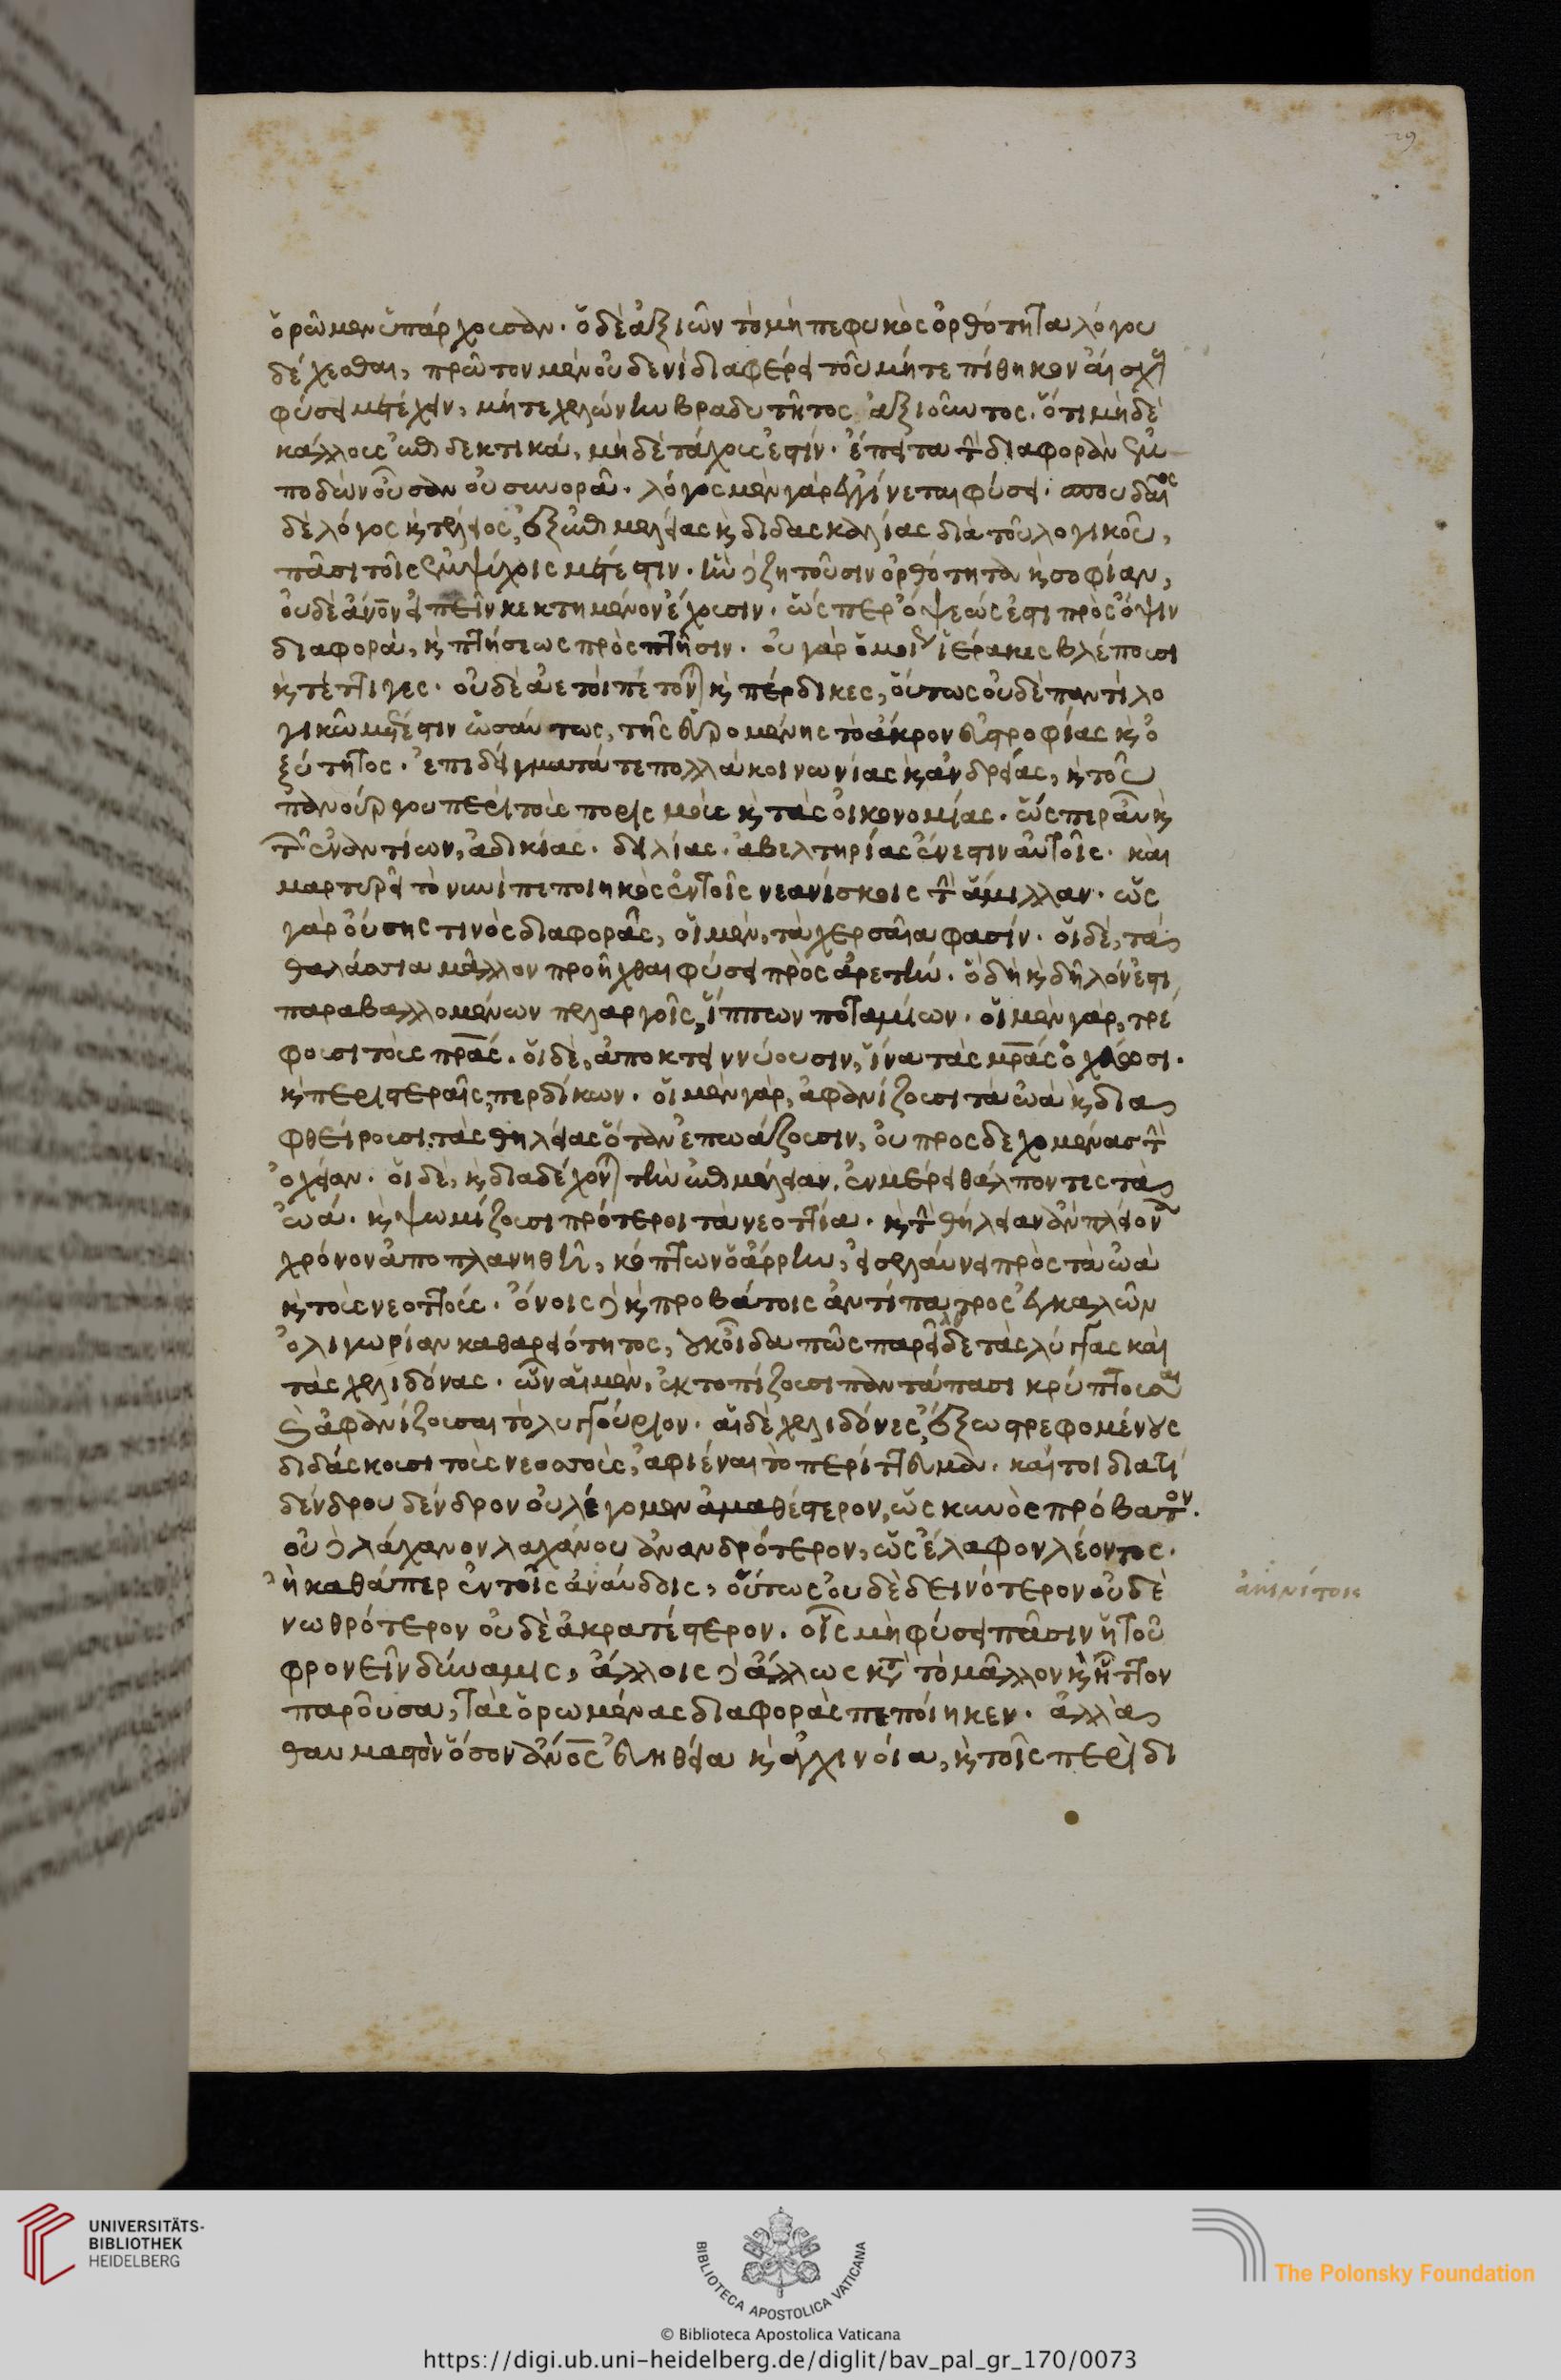 29
ὁρῶμεν ὑπάρχουσαν. ὁ δὲ ἀξιῶν τὸ μὴ πεφυκὸς ὀρθότητα λόγου
δέχεσθαι, πρῶτον μὲν οὐδενὶ διαφέρει τοῦ μήτε πίθηκον αἴσχει
φύσει μετέχειν, μήτε χελώνην βραδυτῆτος ἀξιοῦντος. ὅτι μὴ δὲ
κάλλους ἐπιδεκτικά, μὴ δὲ τάχους ἐστίν. ἔπειτα τὴν διαφορὰν ἐμ
ποδὼν οὖσαν οὐ συνορᾷ. λόγος μὲν γὰρ ἐγγίνεται φύσει. σπουδαῖος
δὲ λόγος κ τέλειος, ἐξ ἐπιμελείας κ διδασκαλίας διὰ τοῦ λογικοῦ,
πᾶσι τοῖς ἐμψύχοις μέτεστιν. ἣν δὲ ζητοῦσιν ὀρθότητα κ σοφίαν,
οὐδὲ ἄνον εἰπεῖν κεκτημένον ἔχουσιν. ὥς περ ὄψεώς ἐστι πρὸς ὄψιν
διαφορὰ, κ πτήσεως πρὸς πτῆσιν. οὐ γὰρ ὁμοίως ἱέρακες βλέπουσι
κ τέττιγες. οὐδὲ ἀετοὶ πέτονται κ πέρδικες, οὕτως οὐδὲ παντὶ λο
γικῷ μέτεστιν ὡσαύτως, τῆς εὑρομένης τὸ ἄκρον εὐστροφίας κ ὀ
ξύτητος. ἐπιδείγματά τε πολλὰ κοινωνίας κ ἀνδρείας, κ τοῦ
πανούργου περὶ τοὺς πορισμοὺς κ τὰς οἰκονομίας. ὥς περ αὖ κ
τῶν ἐναντίων, ἀδικίας. δειλίας. ἀβελτηρίας ἔνεστιν αὐτοῖς. καὶ
μαρτυρεῖ τὸ νυνὶ πεποιηκὸς ἐν τοῖς νεανίσκοις τὴν ἅμιλλαν. ὡς
γὰρ οὔσης τινὸς διαφορᾶς, οἱ μὲν, τὰ χερσαῖα φασίν. οἱ δὲ, τὰ
θαλάσσια μᾶλλον προῆχθαι φύσει πρὸς ἀρετήν. ὃ δὴ κ δῆλόν ἐστι,
παραβαλλομένων πελαργοῖς, ἵππων ποταμίων. οἱ μὲν γὰρ, τρέ
φουσι τοὺς πρας. οἱ δὲ, ἀποκτειννύουσιν, ἵνα τὰς μρας ὀχεύωσι.
κ περιστεραῖς, περδίκων. οἱ μὲν γὰρ, ἀφανίζουσι τὰ ὠὰ κ δια
φθείρουσι τὰς θηλείας ὅταν ἐπωάζουσιν, οὐ προσδεχομένας τὴν
ὀχείαν. οἱ δὲ, κ διαδέχονται τὴν ἐπιμέλειαν, ἐν μέρει θάλποντες τὰ
ὠά. κ ψωμίζουσι πρότεροι τὰ νεοττία. κ τὴν θήλειαν ἂν πλείονα
χρόνον ἀποπλανηθῇ, κόπτων ὁ ἄρρην, εἰσελαύνει πρὸς τὰ ὠὰ
κ τοὺς νεοττούς. ὄνοις δὲ κ προβάτοις ἀντίπατρος ἐγκαλῶν
ὀλιγωρίαν καθαρειότητος, οὐκ οἶδα πῶς παρεῖδε τὰς λύγγας καὶ
τὰς χελιδόνας. ὧν αἱ μὲν, ἐκτοπίζουσι παντάπασι κρύπτουσαι
κ ἀφανίζουσαι τὸ λυγγούριον. αἱ δὲ χελιδόνες, ἔξω στρεφομένους
διδάσκουσι τοὺς νεοσσοὺς, ἀφιέναι τὸ περίττευμα. καί τοι διατί
δένδρου δένδρον οὐ λέγομεν ἀμαθέστερον, ὡς κυνὸς πρόβατον.
οὐδὲ λάχανον λαχάνου ἀνανδρότερον, ὡς ἔλαφον λέοντος.
ἢ καθάπερ ἐν τοῖς ἀναύδοις, οὕτως οὐδὲ δεινότερον οὐδὲ
ἀκινήτοις
νωθρότερον οὐδὲ ἀκρατέστερον. οἷς μὴ φύσει πᾶσιν ἡ τοῦ
φρονεῖν δύναμις, ἄλλοις δὲ ἄλλως κτ τὸ μᾶλλον κ ἧττον
παροῦσα, τὰς ὁρωμένας διαφορὰς πεποίηκεν. ἀλλὰ
θαυμαστὸν ὅσον ἄνος εὐηθεία κ ἀγχινοία, κ τοῖς περὶ δι
UNIVERSITÄTS-
BIBLIOTHEK
HEIDELBERG
BIBLIOTECA APOSTOLICA VATICANA
The Polonsky Foundation
© Biblioteca Apostolica Vaticana
https://digi.ub.uni-heidelberg.de/diglit/bav_pal_gr_170/0073